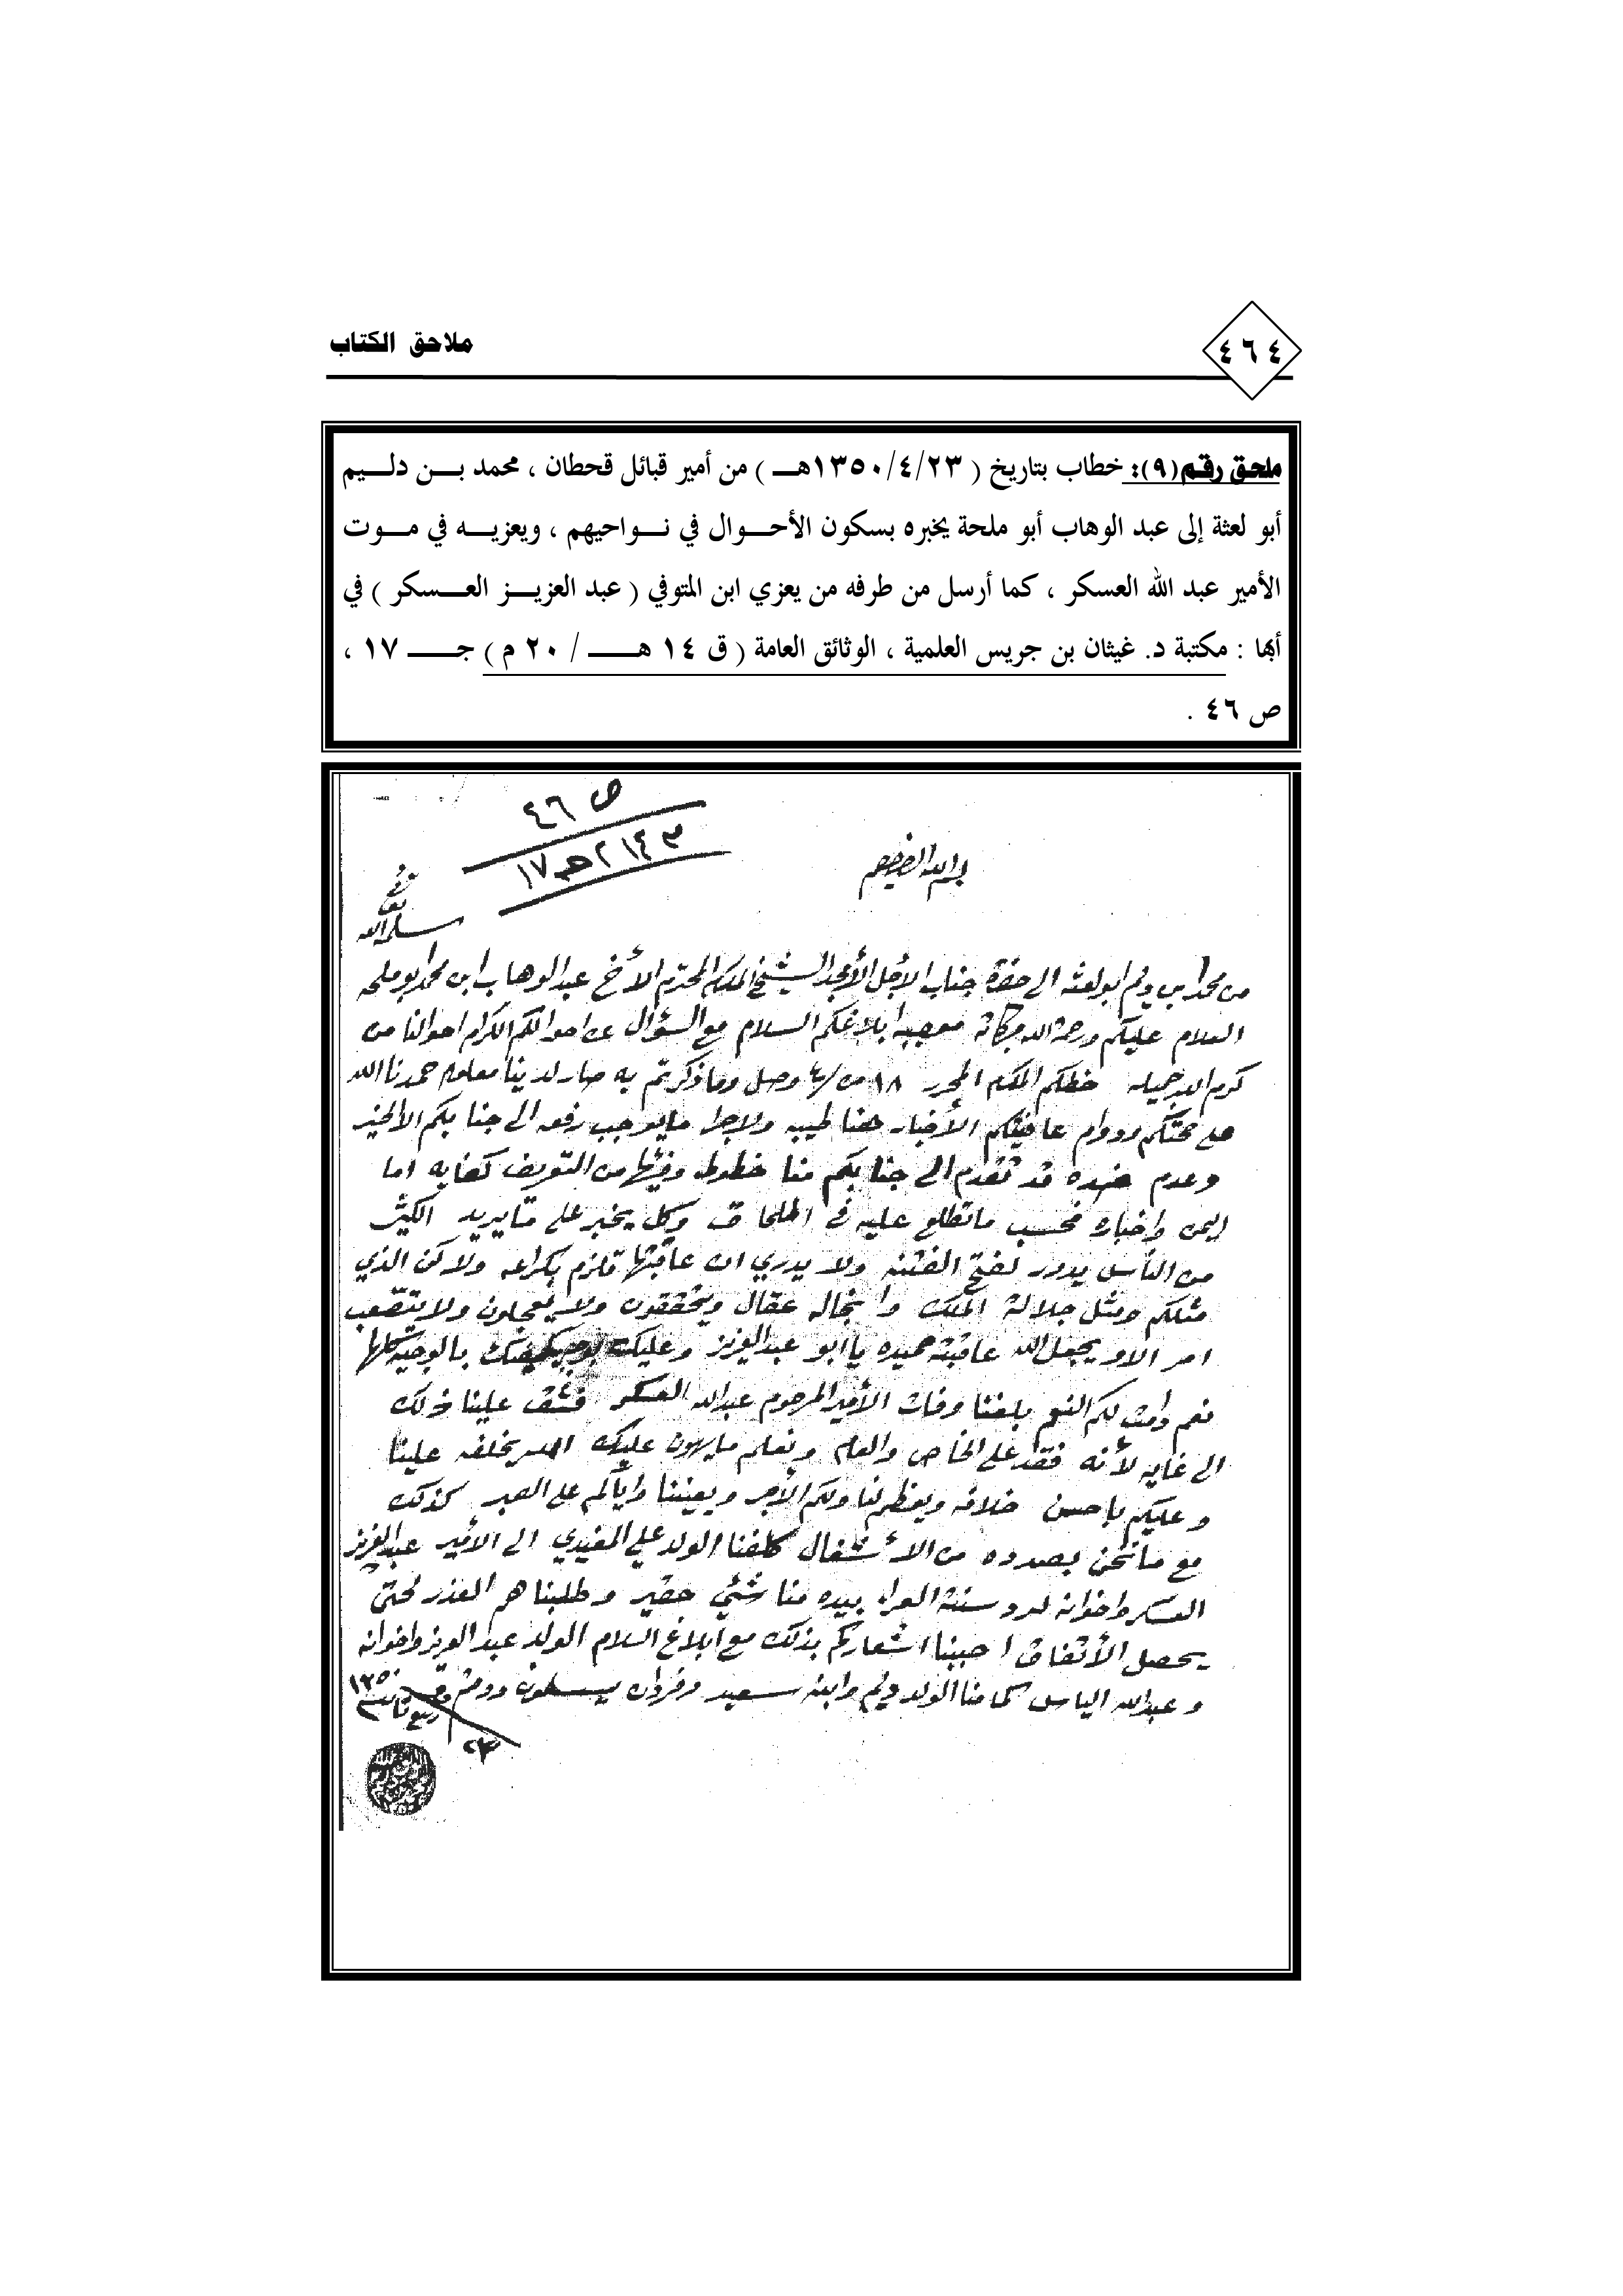 ٤٦٤
ملاحق الكتاب
ملحق رقم (٩): خطاب بتاريخ ( ١٣٥٠/٤/٢٣هـ ) من أمير قبائل قحطان ، محمد بن دليم
أبو لعثة إلى عبد الوهاب أبو ملحة يخبره بسكون الأحوال في نواحيهم ، ويعزيه في موت
الأمير عبد الله العسكر ، كما أرسل من طرفه من يعزي ابن المتوفي ( عبد العزيز العسكر ) في
أبها : مكتبة د. غيثان بن جريس العلمية ، الوثائق العامة ( ق ١٤ هـ / ٢٠ م ) جـ ١٧ ،
ص ٤٦ .
ص ٤٦
١٧
بسم الله الرحمن الرحيم
سلمه الله
من محمد ابن دليم ابو لعثه الى حضرة جناب الاجل الأمجد الشيخ المكرم المحترم الأخ عبد الوهاب ابن محمد ابو ملحه
السلام عليكم ورحمة الله وبركاته موجبه ابلاغكم السلام مع السؤال عن احوالكم الكرام احوالنا من
كرم الله جميله خطكم المكرم المحرر ١٨ من /٤ وصل وما ذكرتم به صار لدينا معلوم حمدنا الله
على صحتكم ودوام عافيتكم الأخبار هنا طيبه ولاجرا ما يوجب رفعه الى جنابكم الا الخير
وعدم ضده قد تقدم الى جنابكم منا خطوط وفيها من التعريف كفايه اما
اليمن واخباره فحسب ما تطلع عليه في الملحاق وكل يخبر على ما يريد الكثير
من الناس يدور لفتح الفتنه ولا يدري ان عاقبتها ولاكن الذي
مثلكم ومثل جلالة الملك وانجاله عقال ويحققون ولا يعجلون ولا يتصعب
امر الا ويجعل الله عاقبته حميده يا ابو عبد العزيز وعليك بالوجيه كلها
نعم دامت لكم النعم بلغنا وفات الأمير المرحوم عبد الله العسكر فشق علينا ذلك
الى غايه لأنه فقد على الخاص والعام ونعلم ما يهون عليك الله يخلفه علينا
وعليكم بإحسن خلافه ويعظم لنا ولكم الأجر ويعيننا واياكم على الصبر كذلك
مع ما نحن بصدده من الأشغال كلفنا الولد علي المغيدي الى الأمير عبد العزيز
العسكر واخوانه لرد سنة العزاء بيده منا شئي حقير وطلبنا هم العذر لحتى
يحصل الأتفاق احببنا اشعاركم بذلك مع ابلاغ السلام الولد عبد العزيز واخوانه
وعبد الله الياس كما منا الولد دليم وابنه سعيد وفردان يسلمون ودمتم
ربيع ثاني سنة ١٣٥٠
٢٣